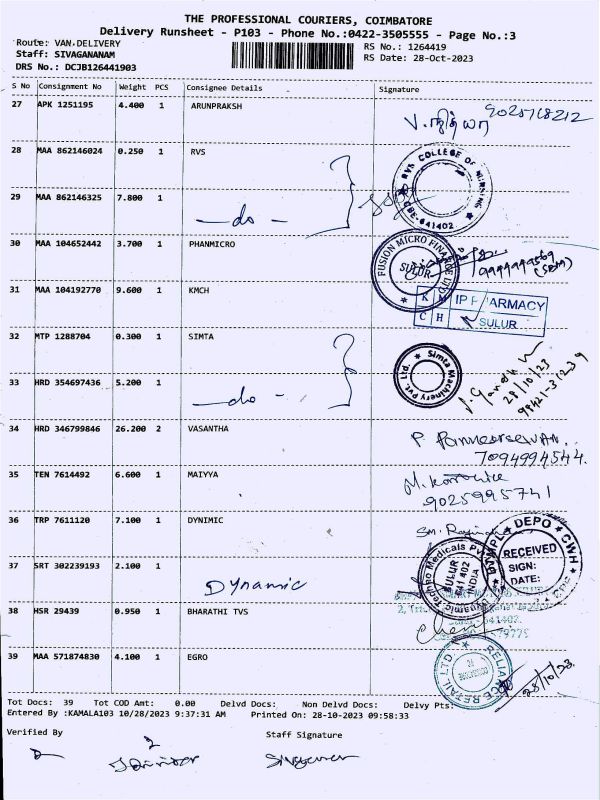 THE PROFESSIONAL COURIERS, COIMBATORE
Delivery Runsheet - P103 - Phone No.:0422-3505555 - Page No.:3
Route: VAN DELIVERY
RS No.: 1264419
Staff: SIVAGANANAM
RS Date: 28-Oct-2023
DRS No.: DCJB126441903
S No Consignment No Weight PCS Consignee Details Signature
27 APK 1251195 4.400 1 ARUNPRAKSH
9025718212
28 MAA 862146024 0.250 1 RVS
RVS COLLEGE OF NURSING
CBE-641402
29 MAA 862146325 7.800 1
-do-
30 MAA 104652442 3.700 1 PHANMICRO
FUSION MICRO FINANCE LTD
SULUR
31 MAA 104192770 9.600 1 KMCH
K M C H
IP PHARMACY
SULUR
32 MTP 1288704 0.300 1 SIMTA
Simta Machinery Pvt. Ltd.
28/10/23
33 HRD 354697436 5.200 1
-do-
34 HRD 346799846 26.200 2 VASANTHA
7094994544.
35 TEN 7614492 6.600 1 MAIYYA
9025995741
36 TRP 7611120 7.100 1 DYNIMIC
DEPO CWH
RECEIVED
SIGN:
DATE:
37 SRT 302239193 2.100 1
Dynamic
SULUR
641 402
INDIA
38 HSR 29439 0.950 1 BHARATHI TVS
39 MAA 571874830 4.100 1 EGRO
RELIANCE RETAIL LTD
28/10/23
Tot Docs: 39 Tot COD Amt: 0.00 Delvd Docs: Non Delvd Docs: Delvy Pts:
Entered By :KAMALA103 10/28/2023 9:37:31 AM Printed On: 28-10-2023 09:58:33
Verified By Staff Signature